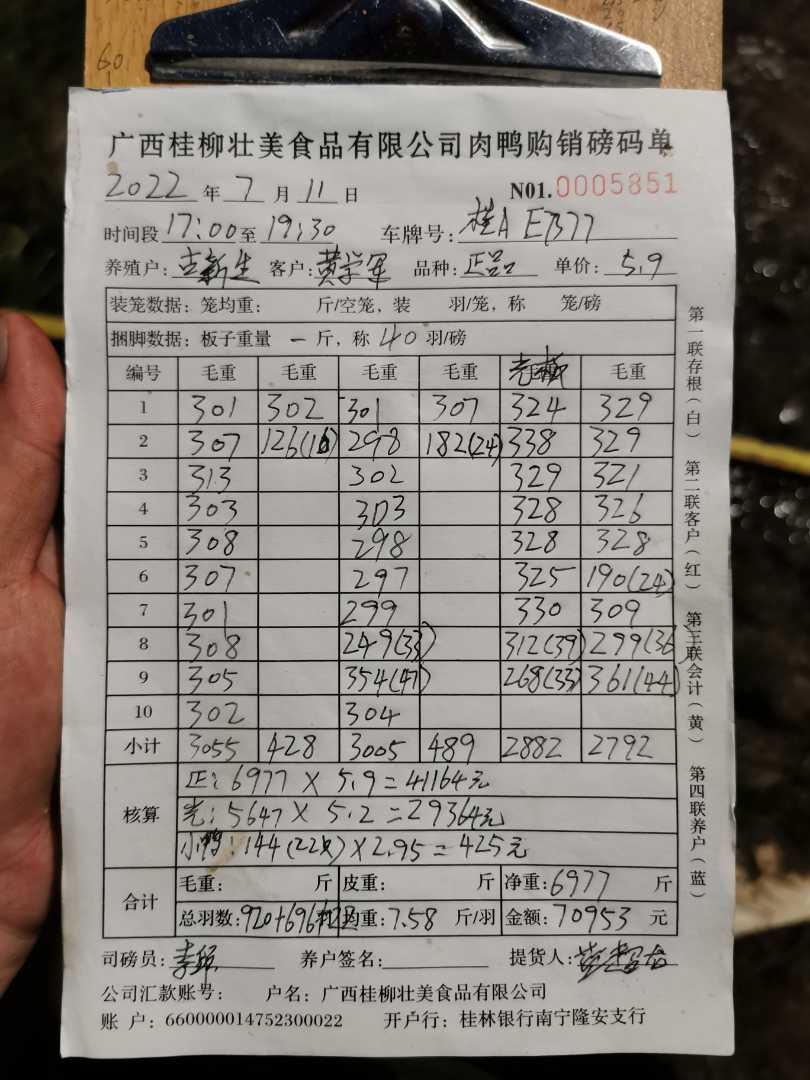 60
广西桂柳壮美食品有限公司肉鸭购销磅码单
2022 年 7 月 11 日 N01.0005851
时间段 17:00 至 19:30 车牌号: 桂A EB77
养殖户: 古新生 客户: 黄学军 品种: 正品 单价: 5.9
装笼数据: 笼均重: 斤/空笼, 装 羽/笼, 称 笼/磅
捆脚数据: 板子重量 一 斤, 称 40 羽/磅
编号 毛重 毛重 毛重 毛重 毛重
1 301 302 301 307 324 329
2 307 126(16) 298 182(24) 338 329
3 313 302 329 321
4 303 303 328 326
5 308 298 328 328
6 307 297 325 190(24)
7 301 299 330 309
8 308 249(33) 312(39) 299(36)
9 305 354(47) 268(33) 361(44)
10 302 304
小计 3055 428 3005 489 2882 2792
核算
正: 6977 × 5.9 = 41164元
光: 5647 × 5.2 = 29364元
小鸭: 144(22只) × 2.95 = 425元
合计
毛重: 斤 皮重: 斤 净重: 6977 斤
总羽数: 920+696+22 均重: 7.58 斤/羽 金额: 70953 元
司磅员: 养户签名: 提货人:
公司汇款账号: 户名: 广西桂柳壮美食品有限公司
账 户: 660000014752300022 开户行: 桂林银行南宁隆安支行
第一联存根(白) 第二联客户(红) 第三联会计(黄) 第四联养户(蓝)